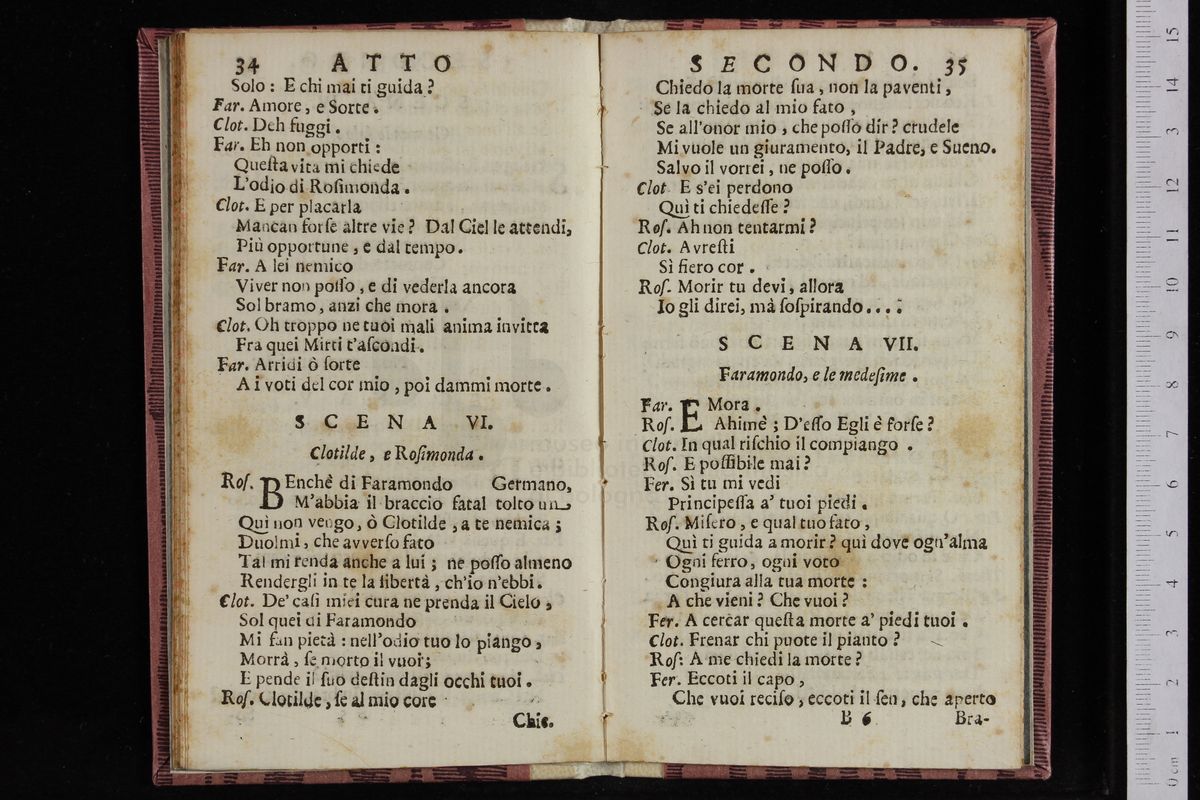 34 ATTO
Solo : E chi mai ti guida ?
Far. Amore , e Sorte .
Clot. Deh fuggi .
Far. Eh non opporti :
Queſta vita mi chiede
L'odio di Roſimonda .
Clot. E per placarla
Mancan forſe altre vie ? Dal Ciel le attendi,
Più opportune , e dal tempo .
Far. A lei nemico
Viver non poſſo , e di vederla ancora
Sol bramo , anzi che mora .
Clot. Oh troppo ne tuoi mali anima invitta
Fra quei Mirti t'aſcondi .
Far. Arridi ò ſorte
A i voti del cor mio , poi dammi morte .
SCENA VI.
Clotilde , e Roſimonda .
Roſ. BEnchè di Faramondo Germano,
M'abbia il braccio fatal tolto un
Qui non vengo, ò Clotilde , a te nemica ;
Duolmi , che avverſo fato
Tal mi renda anche a lui ; ne poſſo almeno
Rendergli in te la libertà , ch'io n'ebbi .
Clot. De' caſi miei cura ne prenda il Cielo ,
Sol quei di Faramondo
Mi fan pietà : nell'odio tuo lo piango ,
Morrà , ſe morto il vuoi ;
E pende il ſuo deſtin dagli occhi tuoi .
Roſ. Clotilde , ſe al mio core
Chie.
SECONDO. 35
Chiedo la morte ſua , non la paventi ,
Se la chiedo al mio fato ,
Se all'onor mio , che poſſo dir ? crudele
Mi vuole un giuramento, il Padre, e Sueno.
Salvo il vorrei , ne poſſo .
Clot. E s'ei perdono
Quì ti chiedeſſe ?
Roſ. Ah non tentarmi ?
Clot. Avreſti
Sì fiero cor .
Roſ. Morir tu devi , allora
Io gli direi, mà ſoſpirando....
SCENA VII.
Faramondo, e le medeſime .
Far. E Mora .
Roſ. Ahimè ; D'eſſo Egli è forſe ?
Clot. In qual riſchio il compiango .
Roſ. E poſſibile mai ?
Fer. Sì tu mi vedi
Principeſſa a' tuoi piedi .
Roſ. Miſero , e qual tuo fato ,
Quì ti guida a morir ? quì dove ogn'alma
Ogni ferro, ogni voto
Congiura alla tua morte :
A che vieni ? Che vuoi ?
Fer. A cercar queſta morte a' piedi tuoi .
Clot. Frenar chi puote il pianto ?
Roſ: A me chiedi la morte ?
Fer. Eccoti il capo ,
Che vuoi reciſo , eccoti il ſen , che aperto
B 6 Bra-